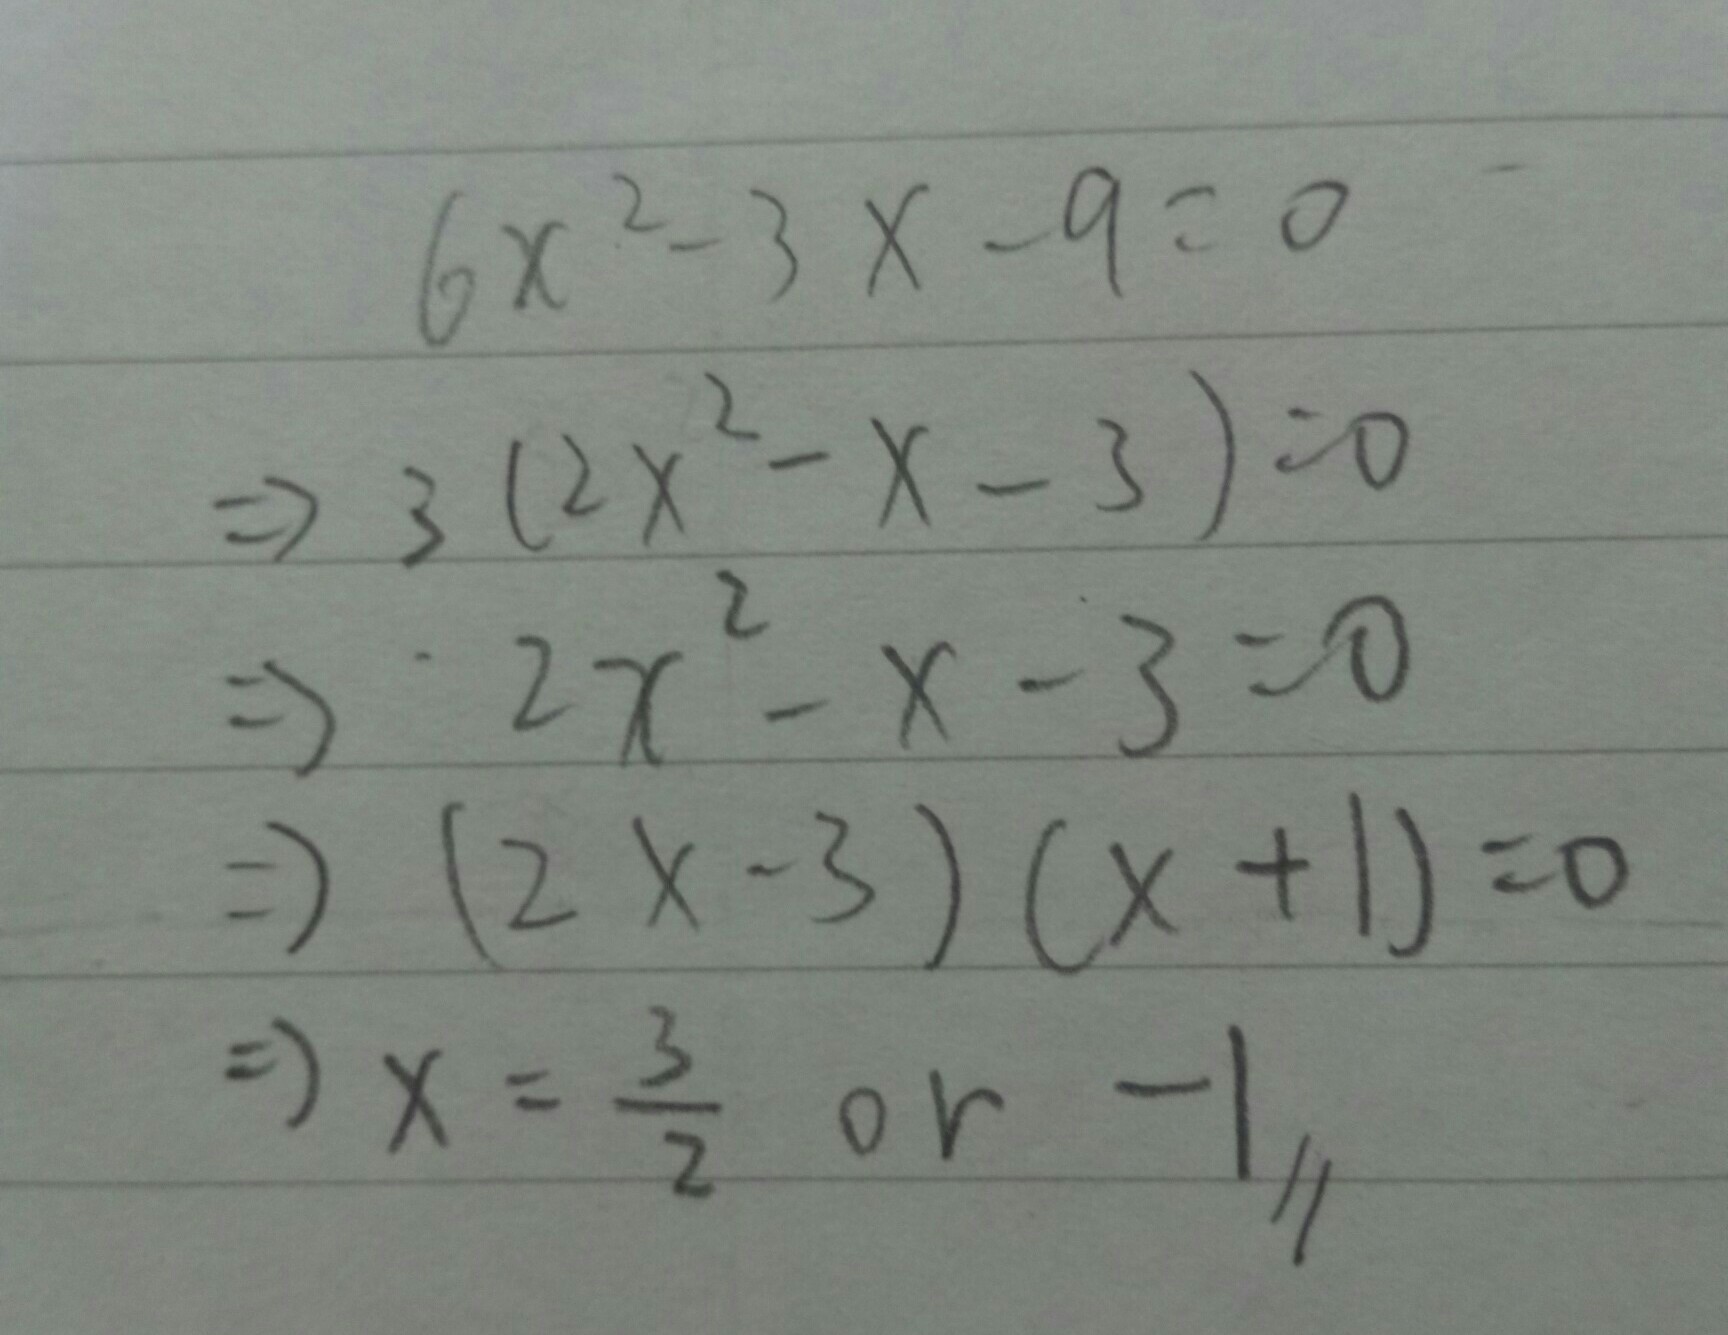 6x² - 3x - 9 = 0
⇒ 3(2x² - x - 3) = 0
⇒ 2x² - x - 3 = 0
⇒ (2x - 3)(x + 1) = 0
⇒ x = 3/2 or -1 //